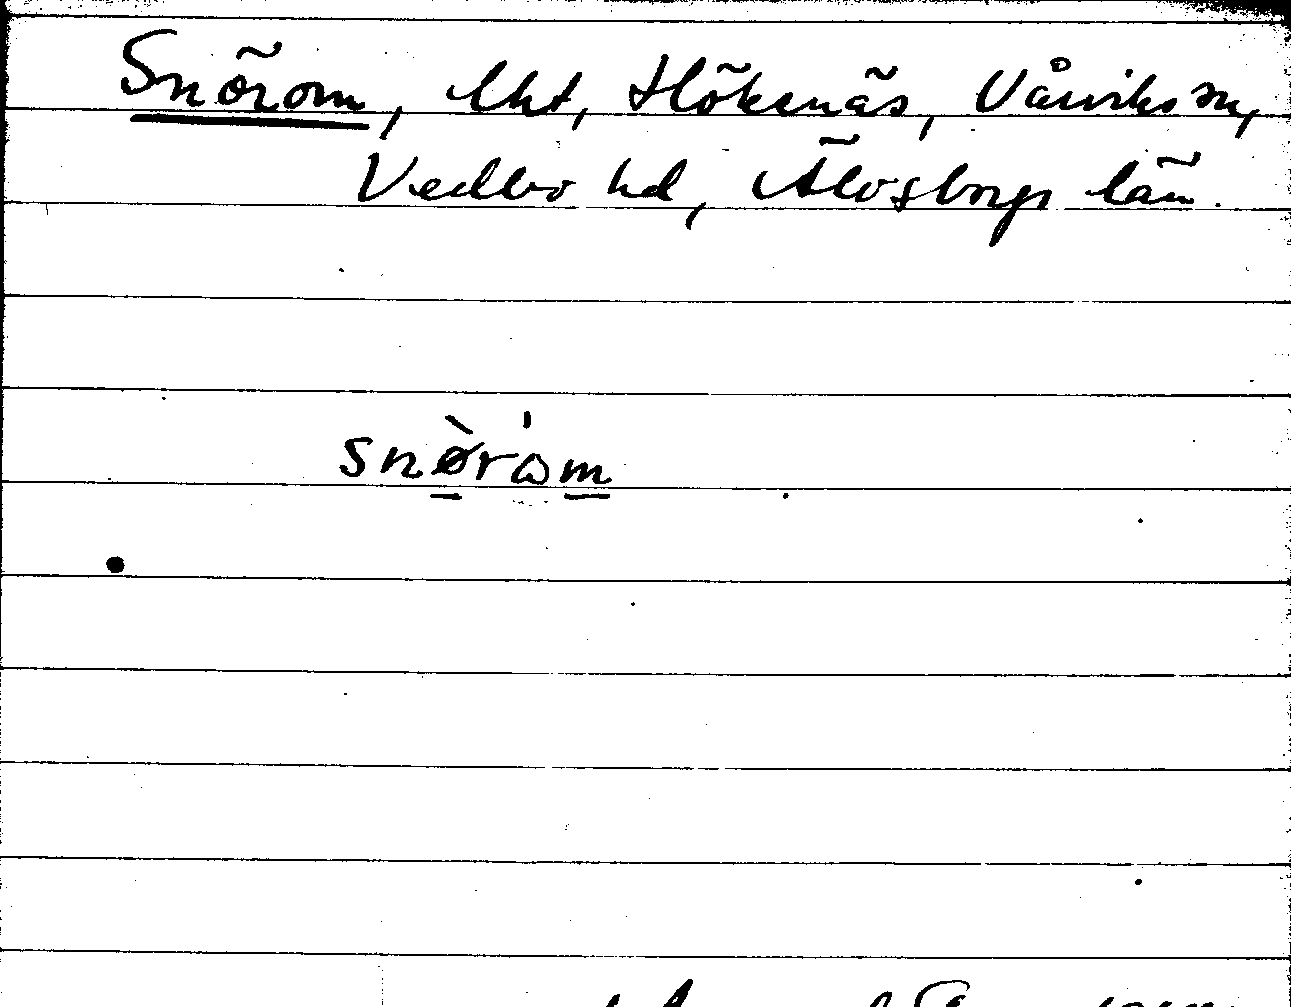 Snörom, lht, Hökenäs, Vårviks sn,
Vedbo hd, Älvsborgs län.
snø̀rɷ̍m